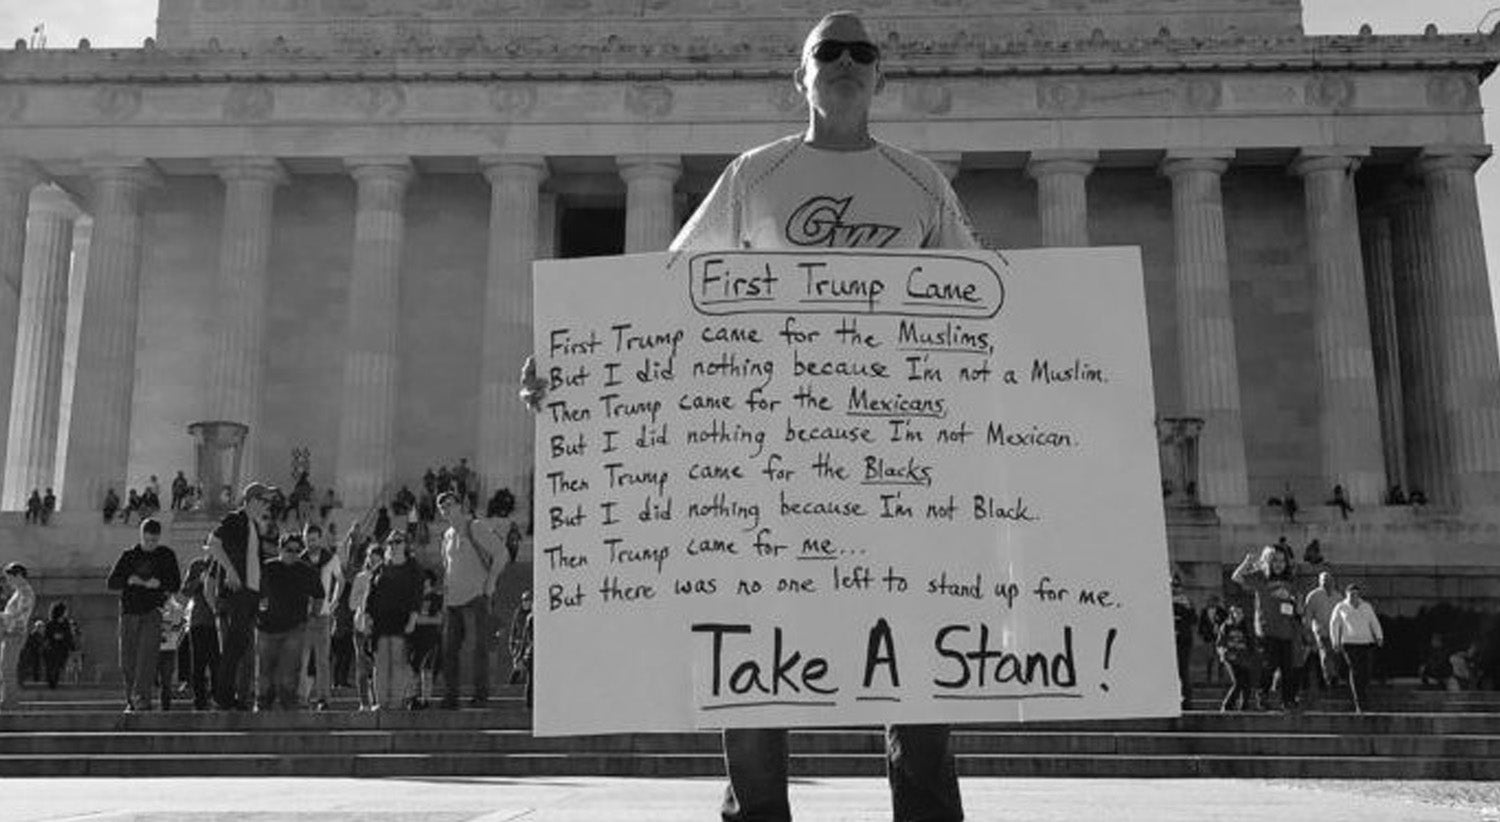 First Trump Came
First Trump came for the Muslims,
But I did nothing because I'm not a Muslim.
Then Trump came for the Mexicans,
But I did nothing because I'm not Mexican.
Then Trump came for the Blacks,
But I did nothing because I'm not Black.
Then Trump came for me...
But there was no one left to stand up for me.
Take A Stand!